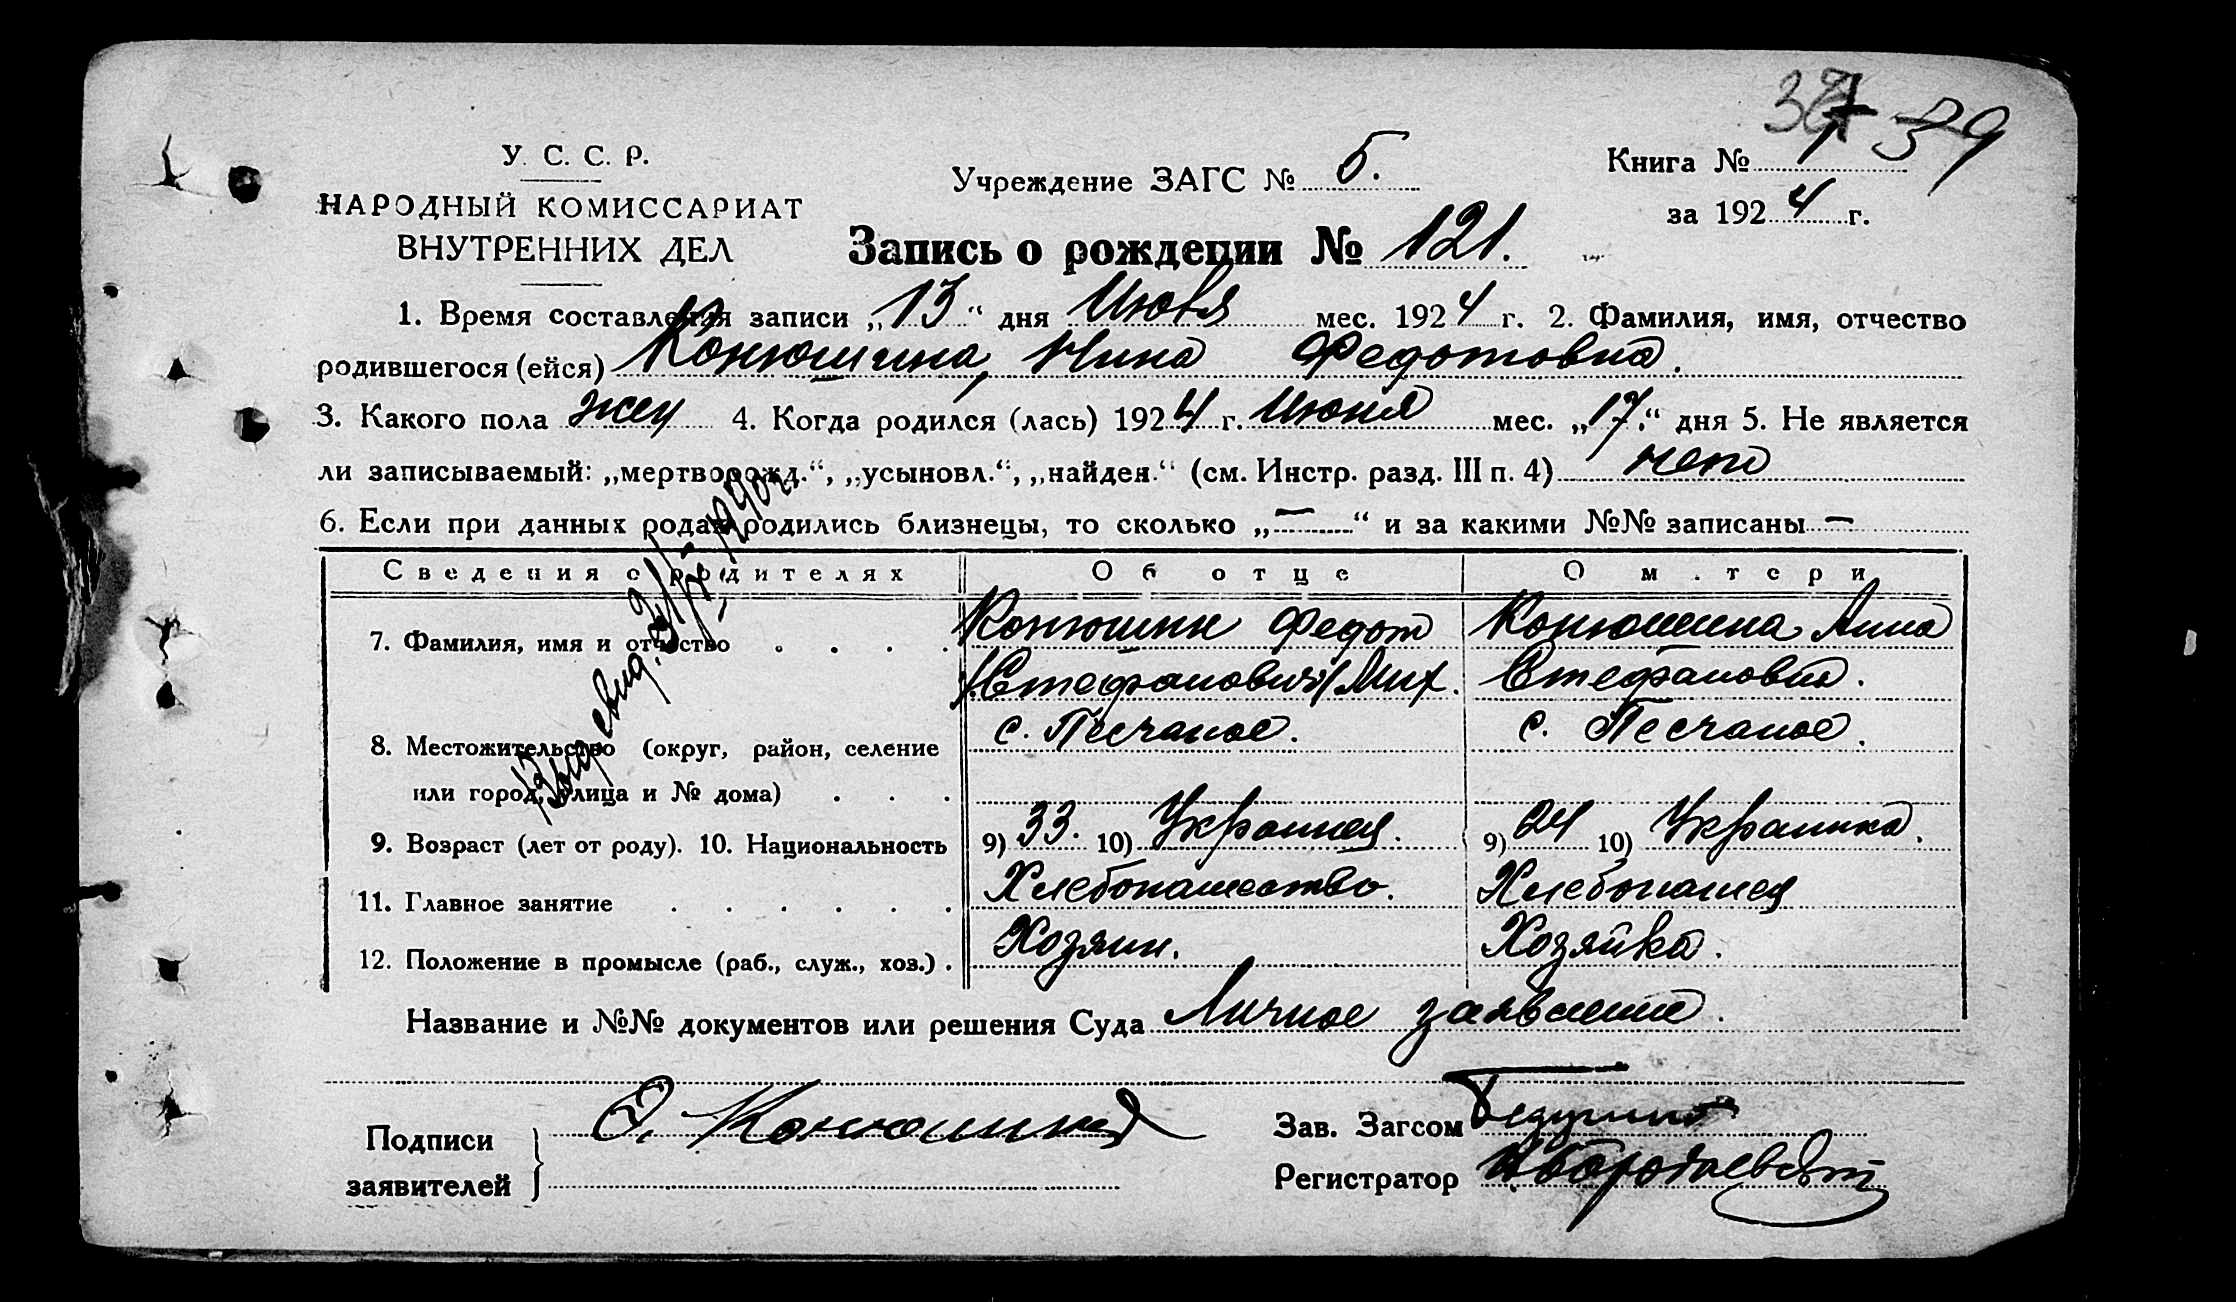 39
У. С. С. Р.
НАРОДНЫЙ КОМИССАРИАТ
ВНУТРЕННИХ ДЕЛ
Учреждение ЗАГС № 5.
Книга № 1
за 1924 г.
Запись о рождении № 121.
1. Время составления записи „13“ дня Июля мес. 1924 г. 2. Фамилия, имя, отчество
родившегося (ейся) Конюшина, Нина Федотовна.
3. Какого пола жен 4. Когда родился (лась) 1924 г. Июня мес. „17.“ дня 5. Не является
ли записываемый: „мертворожд.“, „усыновл.“, „найден.“ (см. Инстр. разд. III п. 4) нет
6. Если при данных родах родились близнецы, то сколько „—“ и за какими №№ записаны —
Сведения о родителях Об отце О м.тери
7. Фамилия, имя и отчество . . . . Конюшин Федот Конюшина Анна
Стефанович/Мих. Стефановна.
8. Местожительство (округ, район, селение с. Песчаное. с. Песчаное.
или город, улица и № дома) . . .
9. Возраст (лет от роду). 10. Национальность 9) 33. 10) Украинец. 9) 24 10) Украинка.
11. Главное занятие . . . . . . Хлебопашество. Хлебопашец
12. Положение в промысле (раб., служ., хоз.) . Хозяин. Хозяйка.
Выд. свид.
Название и №№ документов или решения Суда Личное заявление.
Подписи
заявителей
Ф. Конюшин
Зав. Загсом
Регистратор